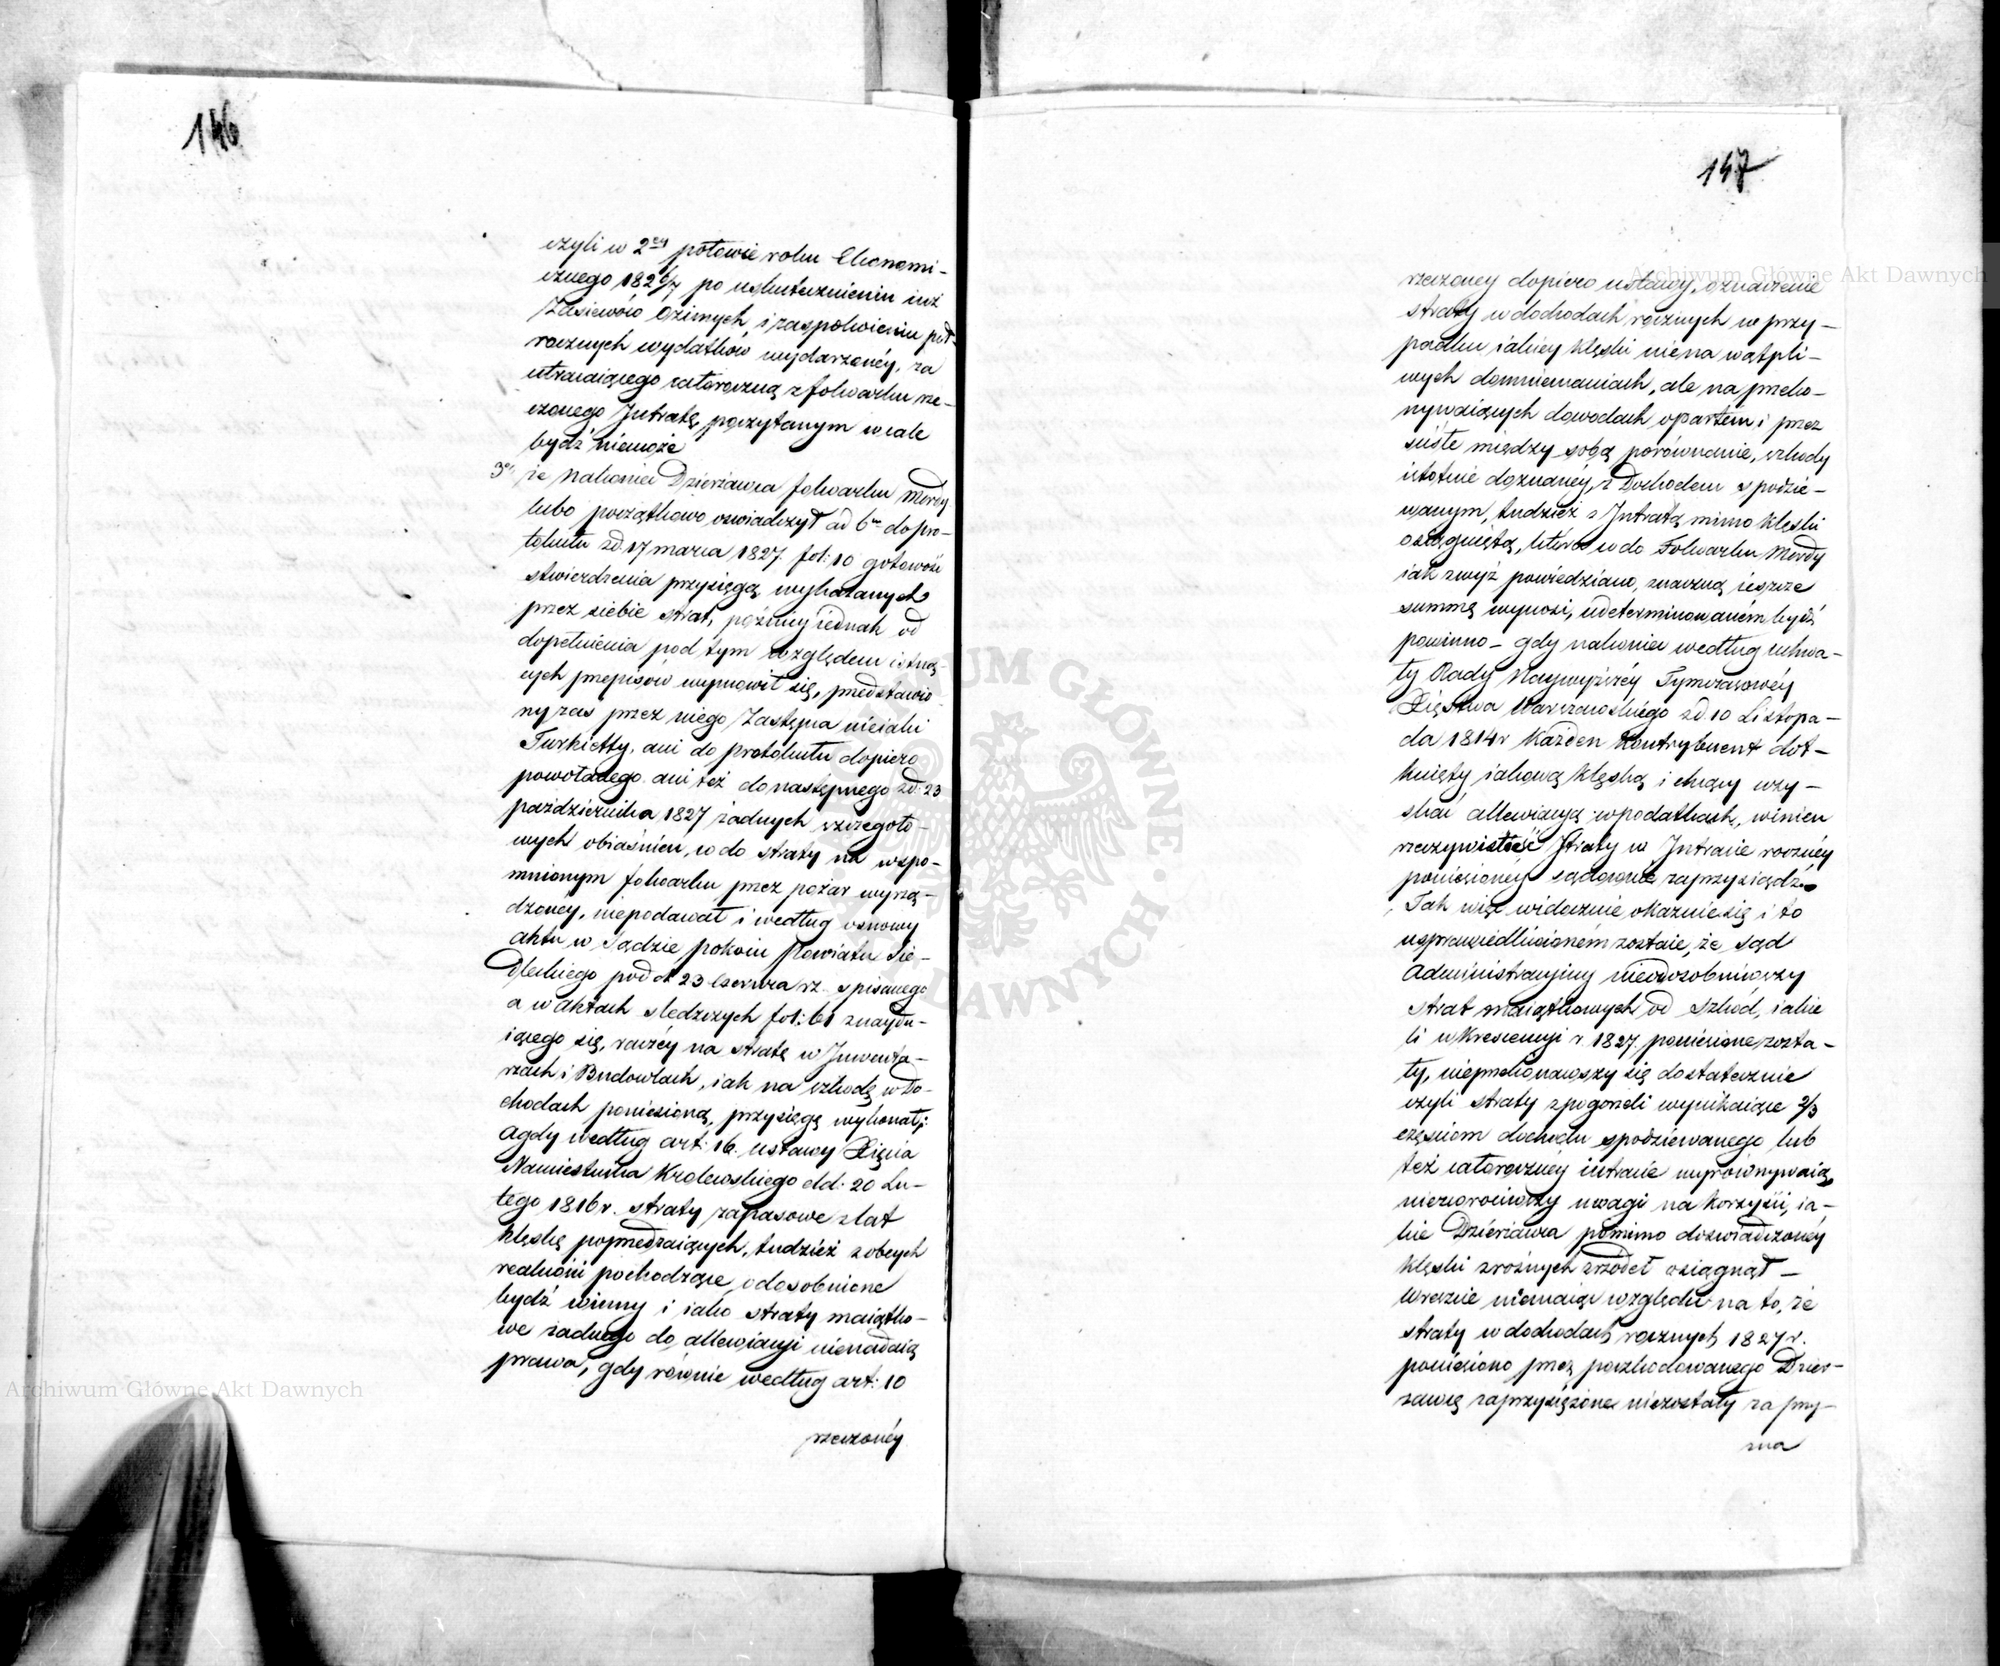 146
czyli w 2ey połowie roku Ekonomi-
cznego 1826/7 po uskutecznieniu iuż
Zasiewów Ozimych, i zaspokoieniu pół-
rocznych wydatków wydarzonéy, za
utracaiącego całoroczną z folwarku rze-
czonego Intratę, poczytanym wcale
bydź niemoże
3e że nakoniec Dzierżawca folwarku Mordy
lubo początkowo oswiadczył ad 6m do pro-
tokułu zd. 17 marca 1827. fol: 10 gotowość
stwierdzenia przysięgą wykazanych
przez siebie strat, późniey iednak od
dopełnienia pod tym względem istnią-
cych przepisów wymówił się, przedstawio-
ny zas przez niego Zastępca nieiaki
Turkietty, ani do protokułu dopiero
powołanego ani też do następnego zd: 23
października 1827 żadnych szczegóło-
wych obiaśnień, co do straty na wspo-
mnionym folwarku przez pożar wyrzą-
dzoney, niepodawał i według osnowy
aktu w Sądzie pokoiu Powiatu Sie-
dleckiego pod d 23 Czerwca rz. spisanego
a w aktach sledczych fol: 61 znaydu-
iącego się, raczéy na stratę w Inwenta-
rzach i Budowlach, iak na szkodę w Do-
chodach poniesioną, przysięgę wykonał;
a gdy według art: 16. ustawy Xięcia
Namiestnika Królewskiego dd: 20 Lu-
tego 1816 r. straty zapasowe z lat
klęskę poprzedzaiących, tudzież z obcych
realności pochodzące, odosobnione
bydź winny i iako straty maiątko-
we żadnego do allewiacyi nienadaią
prawa, gdy równie według art: 10
rzeczonéy
147
rzeczoney dopiero ustawy, oznaczenie
straty w dochodach rocznych w przy-
padku iakiey klęski nie na wątpli-
wych domniemaniach, ale na przeko-
nywaiących dowodach opartem i przez
ścisłe między sobą porównanie, szkody
istotnie doznanéy, z Dochodem spodzie-
wanym, tudzież z Intratą mimo klęski
osiągniętą, która co do Folwarku Mordy
iak zwyż powiedziano, znaczną ieszcze
summę wynosi, udeterminowaném bydź
powinno – gdy nakoniec według uchwa-
ły Rady Naywyższéy Tymczasowéy
Xięstwa Warszawskiego zd. 10 Listopa-
da 1814 r Każden Kontrybuent dot-
knięty iakową klęską i chcący uzy-
skać allewiacyą w podatkach, winien
rzeczywistość Straty w Intracie rocznéy
poniesioney sądownie zaprzysiądz.
Tak więc widocznie okazuie się i to
usprawiedliwioném zostaie, że Sąd
Administracyiny nieodosobniwszy
strat maiątkowych od szkód, iakie
li w Krescencyi r 1827. poniesione zosta-
ły, nieprzekonawszy się dostatecznie
czyli straty z pogorzeli wynikaiące 2/3
częściom dochodu spodziewanego lub
też całoroczney intracie wyrównywaią,
niezwróciwszy uwagi na korzyści, ia-
kie Dzierżawca pomimo doswiadczonéy
klęski z rożnych zrzódeł osiągnął –
wreszcie niemaiąc względu na to, że
straty w dochodach rocznych 1827 r.
poniesione przez poszkodowanego Dzier-
żawcę zaprzysiężone niezostały za przy-
zna